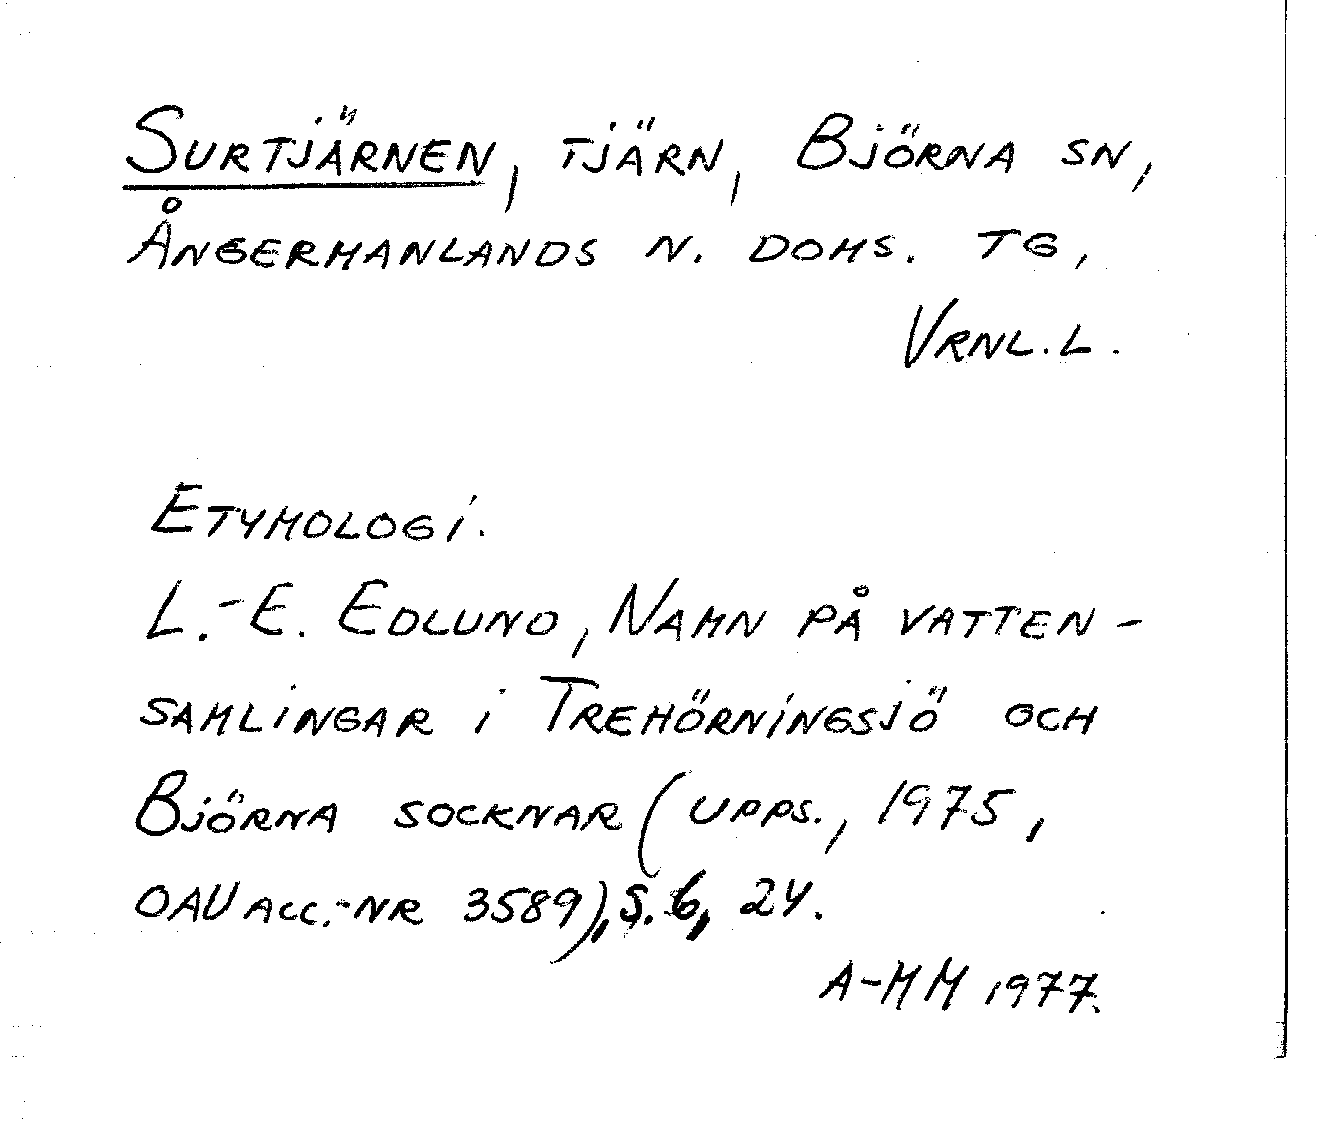 Surtjärnen, tjärn, Björna sn,
Ångermanlands n. doms. tg,
Vrnl. l.
Etymologi.
L.-E. Edlund, Namn på vatten-
samlingar i Trehörningsjö och
Björna socknar (Upps., 1975,
OAU acc.-nr 3589), s. 6, 24.
A-MM 1977.